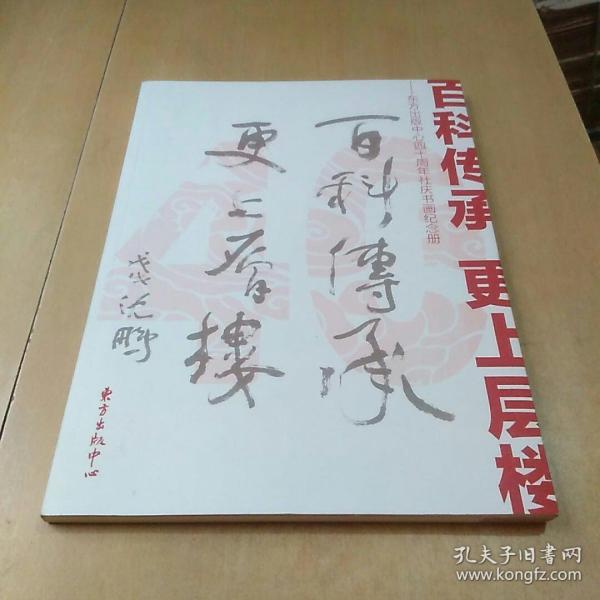 百科传承 更上层楼
——东方出版中心四十周年社庆书画纪念册
百科傳承
更上層樓
戊戌沈鹏
東方出版中心
40
孔夫子旧书网
www.kongfz.com